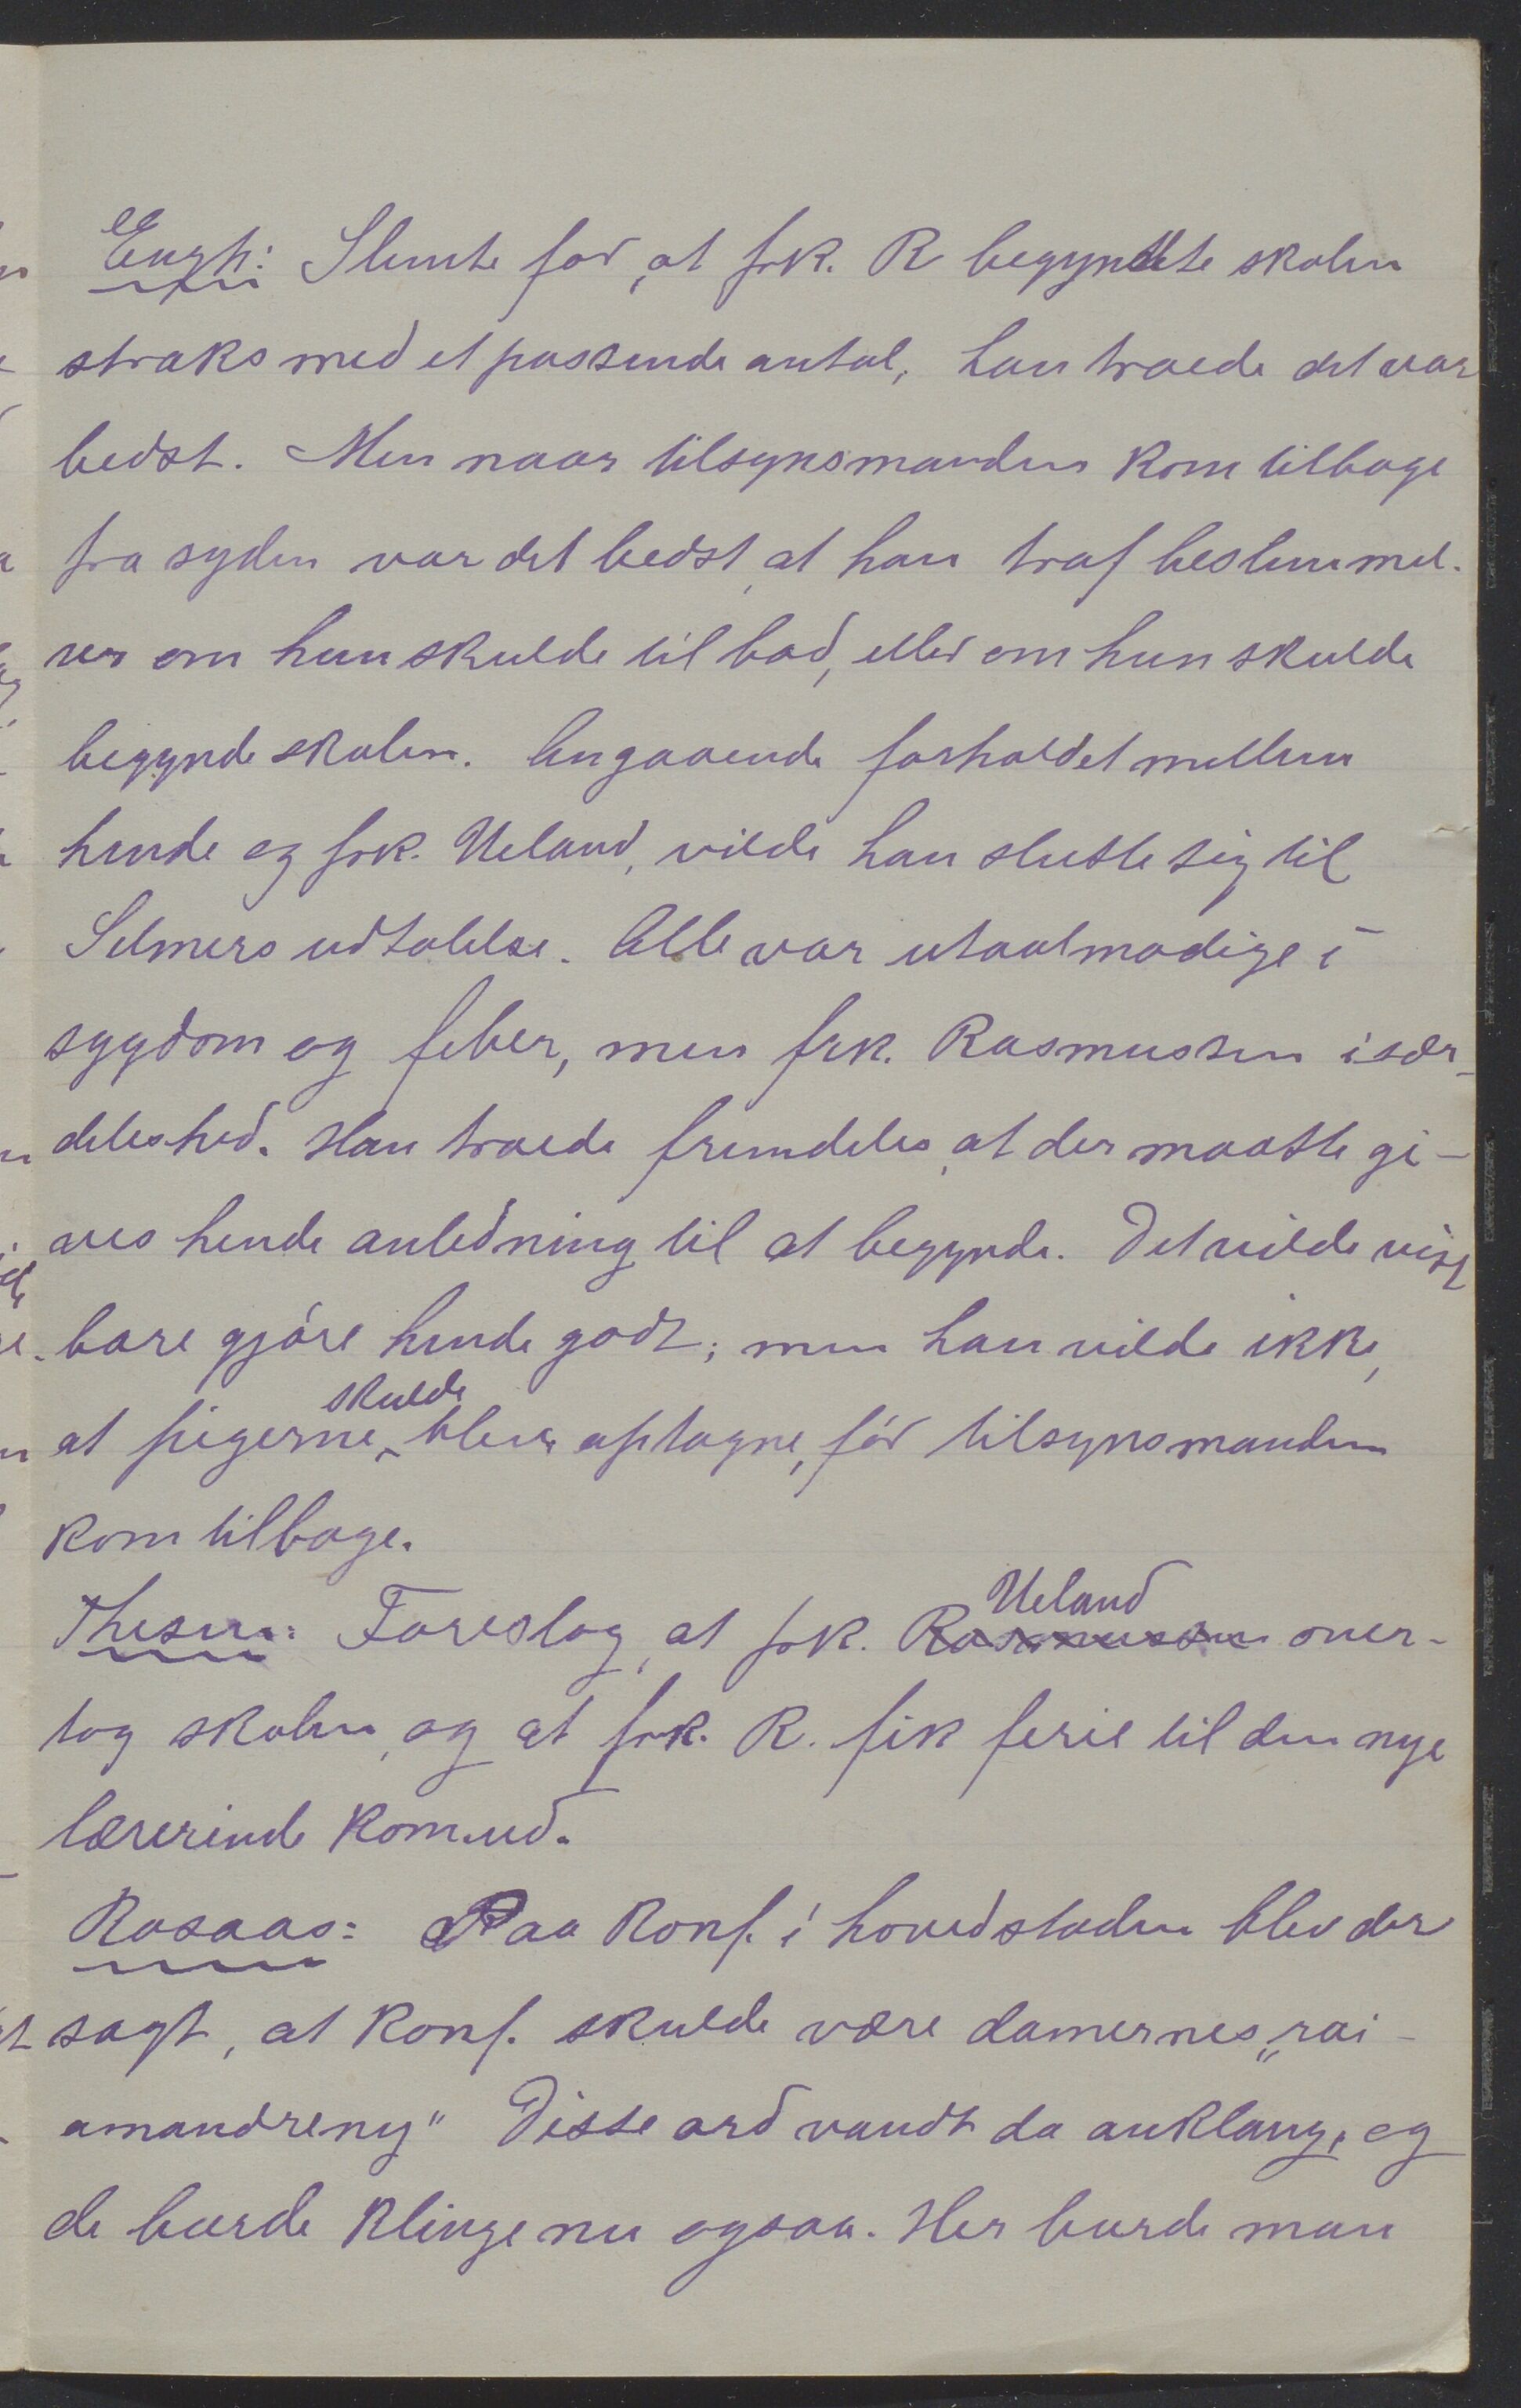 Engh: Stemte for, at frk. R begyndte skolen
straks med et passende antal, han troede det var
bedst. Men naar tilsynsmanden kom tilbage
fra syden var det bedst, at han traf bestemmel-
ser om hun skulde til bad, eller om hun skulde
begynde skolen. Angaaende forholdet mellem
hende og frk. Ueland, vilde han slutte sig til
Selmers udtalelse. Alle var utaalmodige i
sygdom og feber, men frk. Rasmussen især-
deleshed. Han troede fremdeles, at der maatte gi-
ves hende anledning til at begynde. Det vilde vist
bare gjøre hende godt; men han vilde ikke,
at pigerne skulde blive optagne, før tilsynsmanden
kom tilbage.
Thesen: Foreslog, at frk. Rasmussen Ueland over-
tog skolen, og at frk. R. fik ferie til den nye
lærerinde kom ud.
Rosaas: Paa konf. i hovedstaden blev der
sagt, at konf. skulde være damernes „rai-
amandreny" Disse ord vandt da anklang, og
de burde klinge nu ogsaa. Her burde man